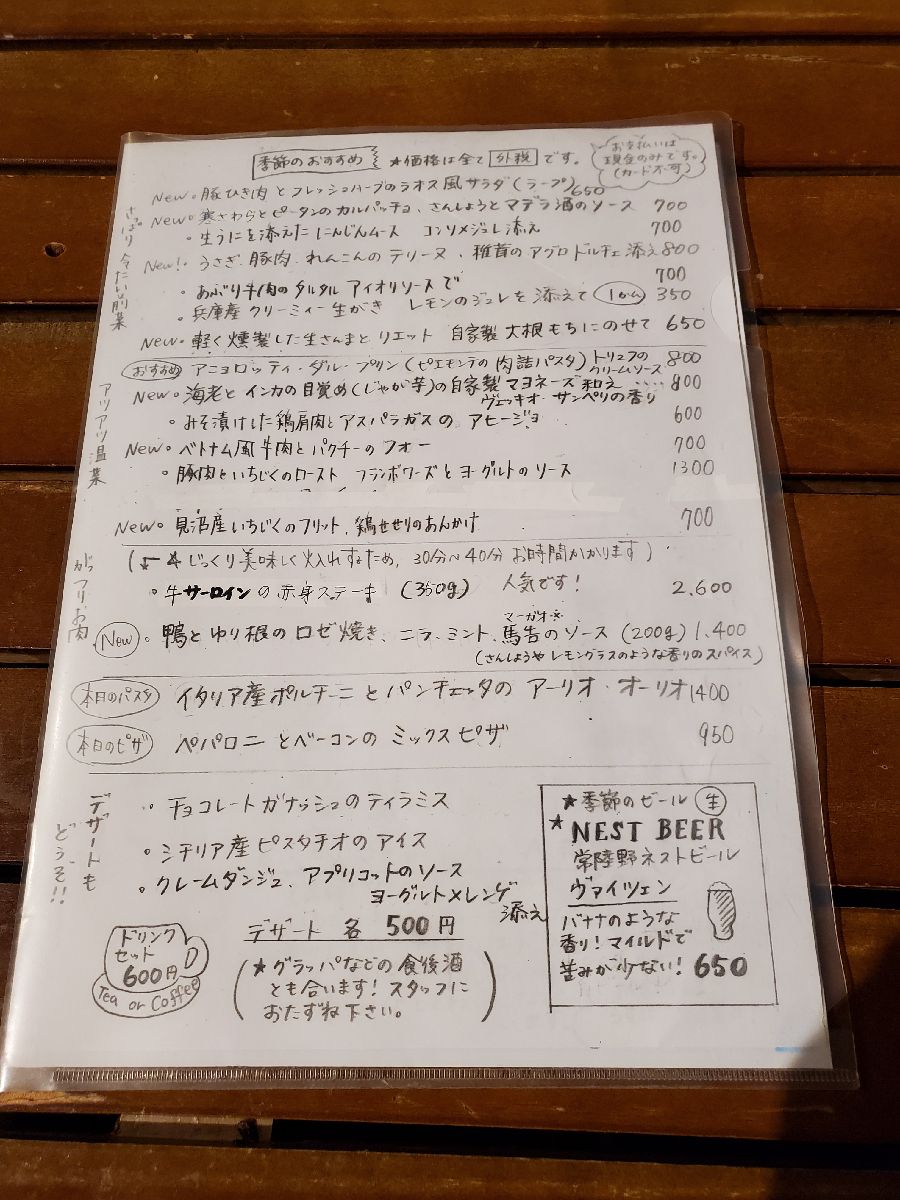 季節のおすすめ ★価格は全て 外税 です。
お支払いは
現金のみです。
(カード不可)
さっぱり 冷たい前菜
New 。豚ひき肉とフレッシュハーブのラオス風サラダ(ラープ) 650
New 。寒さわらとピータンのカルパッチョ、さんしょうとマデラ酒のソース 700
。生うにを添えたにんじんムース コンソメジュレ添え 700
New! 。うさぎ、豚肉、れんこんのテリーヌ、椎茸のアグロドルチェ添え 800
。あぶり牛肉のタルタル アイオリソースで 700
。兵庫産クリーミィー生がき レモンのジュレを添えて 1かん 350
New 。軽く燻製した生さんまとリエット 自家製大根もちにのせて 650
アツアツ温菜
おすすめ アニョロッティ・ダル・プリン(ピエモンテの肉詰パスタ)トリュフのクリームソース 800
New 。海老とインカの目覚め(じゃが芋)の自家製マヨネーズ和え ‥‥ 800
ヴェッキオ・サンペリの香り
。みそ漬けした鶏肩肉とアスパラガスの アヒージョ 600
New 。ベトナム風牛肉とパクチーのフォー 700
。豚肉といちじくのロースト フランボワーズとヨーグルトのソース 1300
New 。見沼産いちじくのフリット、鶏せせりのあんかけ 700
がっつり、お肉
じっくり美味しく火入れするため、30分~40分 お時間かかります)
。牛サーロインの赤身ステーキ (350g) 人気です! 2,600
New 。鴨とゆり根のロゼ焼き、ニラ、ミント、馬告のソース (200g) 1,400
マーガオ
(さんしょうやレモングラスのような香りのスパイス)
本日のパスタ イタリア産ポルチーニとパンチェッタの アーリオ・オーリオ 1400
本日のピザ ペパロニとベーコンの ミックスピザ 950
デザートも
どうぞ!!
。チョコレートガナッシュのティラミス
。シチリア産ピスタチオのアイス
。クレームダンジュ、アプリコットのソース
ヨーグルトメレンゲ
添え
デザート 各 500円
(★グラッパなどの食後酒
とも合います! スタッフに
おたずね下さい。)
ドリンク
セット
600円
Tea or Coffee
★季節のビール 生
★ NEST BEER
常陸野ネストビール
ヴァイツェン
バナナのような
香り! マイルドで
苦みが少ない! 650